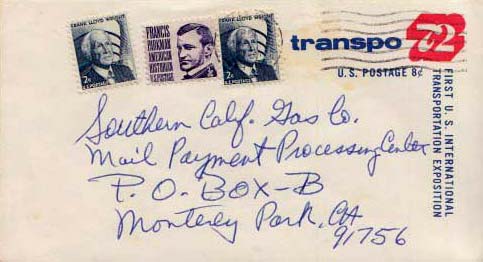 FRANK LLOYD WRIGHT
2¢
U.S. POSTAGE
FRANCIS
PARKMAN
AMERICAN
HISTORIAN
U.S. POSTAGE
FRANK LLOYD WRIGHT
2¢
U.S. POSTAGE
transpo 72
U.S. POSTAGE 8¢
FIRST U.S. INTERNATIONAL
TRANSPORTATION EXPOSITION
Southern Calif. Gas Co.
Mail Payment Processing Center
P.O. BOX-B
Monterey Park, CA
91756